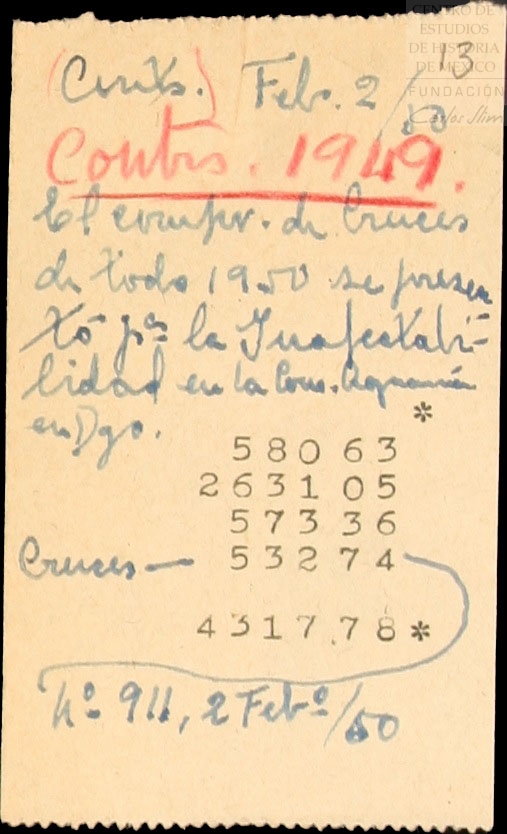 CENTRO DE
ESTUDIOS
DE HISTORIA
DE MÉXICO
FUNDACIÓN
Carlos Slim
13
(Conts.) Feb. 2/50
Contrs. 1949.
El compr. de Cruces
de todo 1950 se presen
tó pª la Inafectabi-
lidad en la Com. Agraria
en Dgo.
*
580 63
2631 05
573 36
Cruces — 532 74
4317.78 *
Nº 911, 2 Febº/50